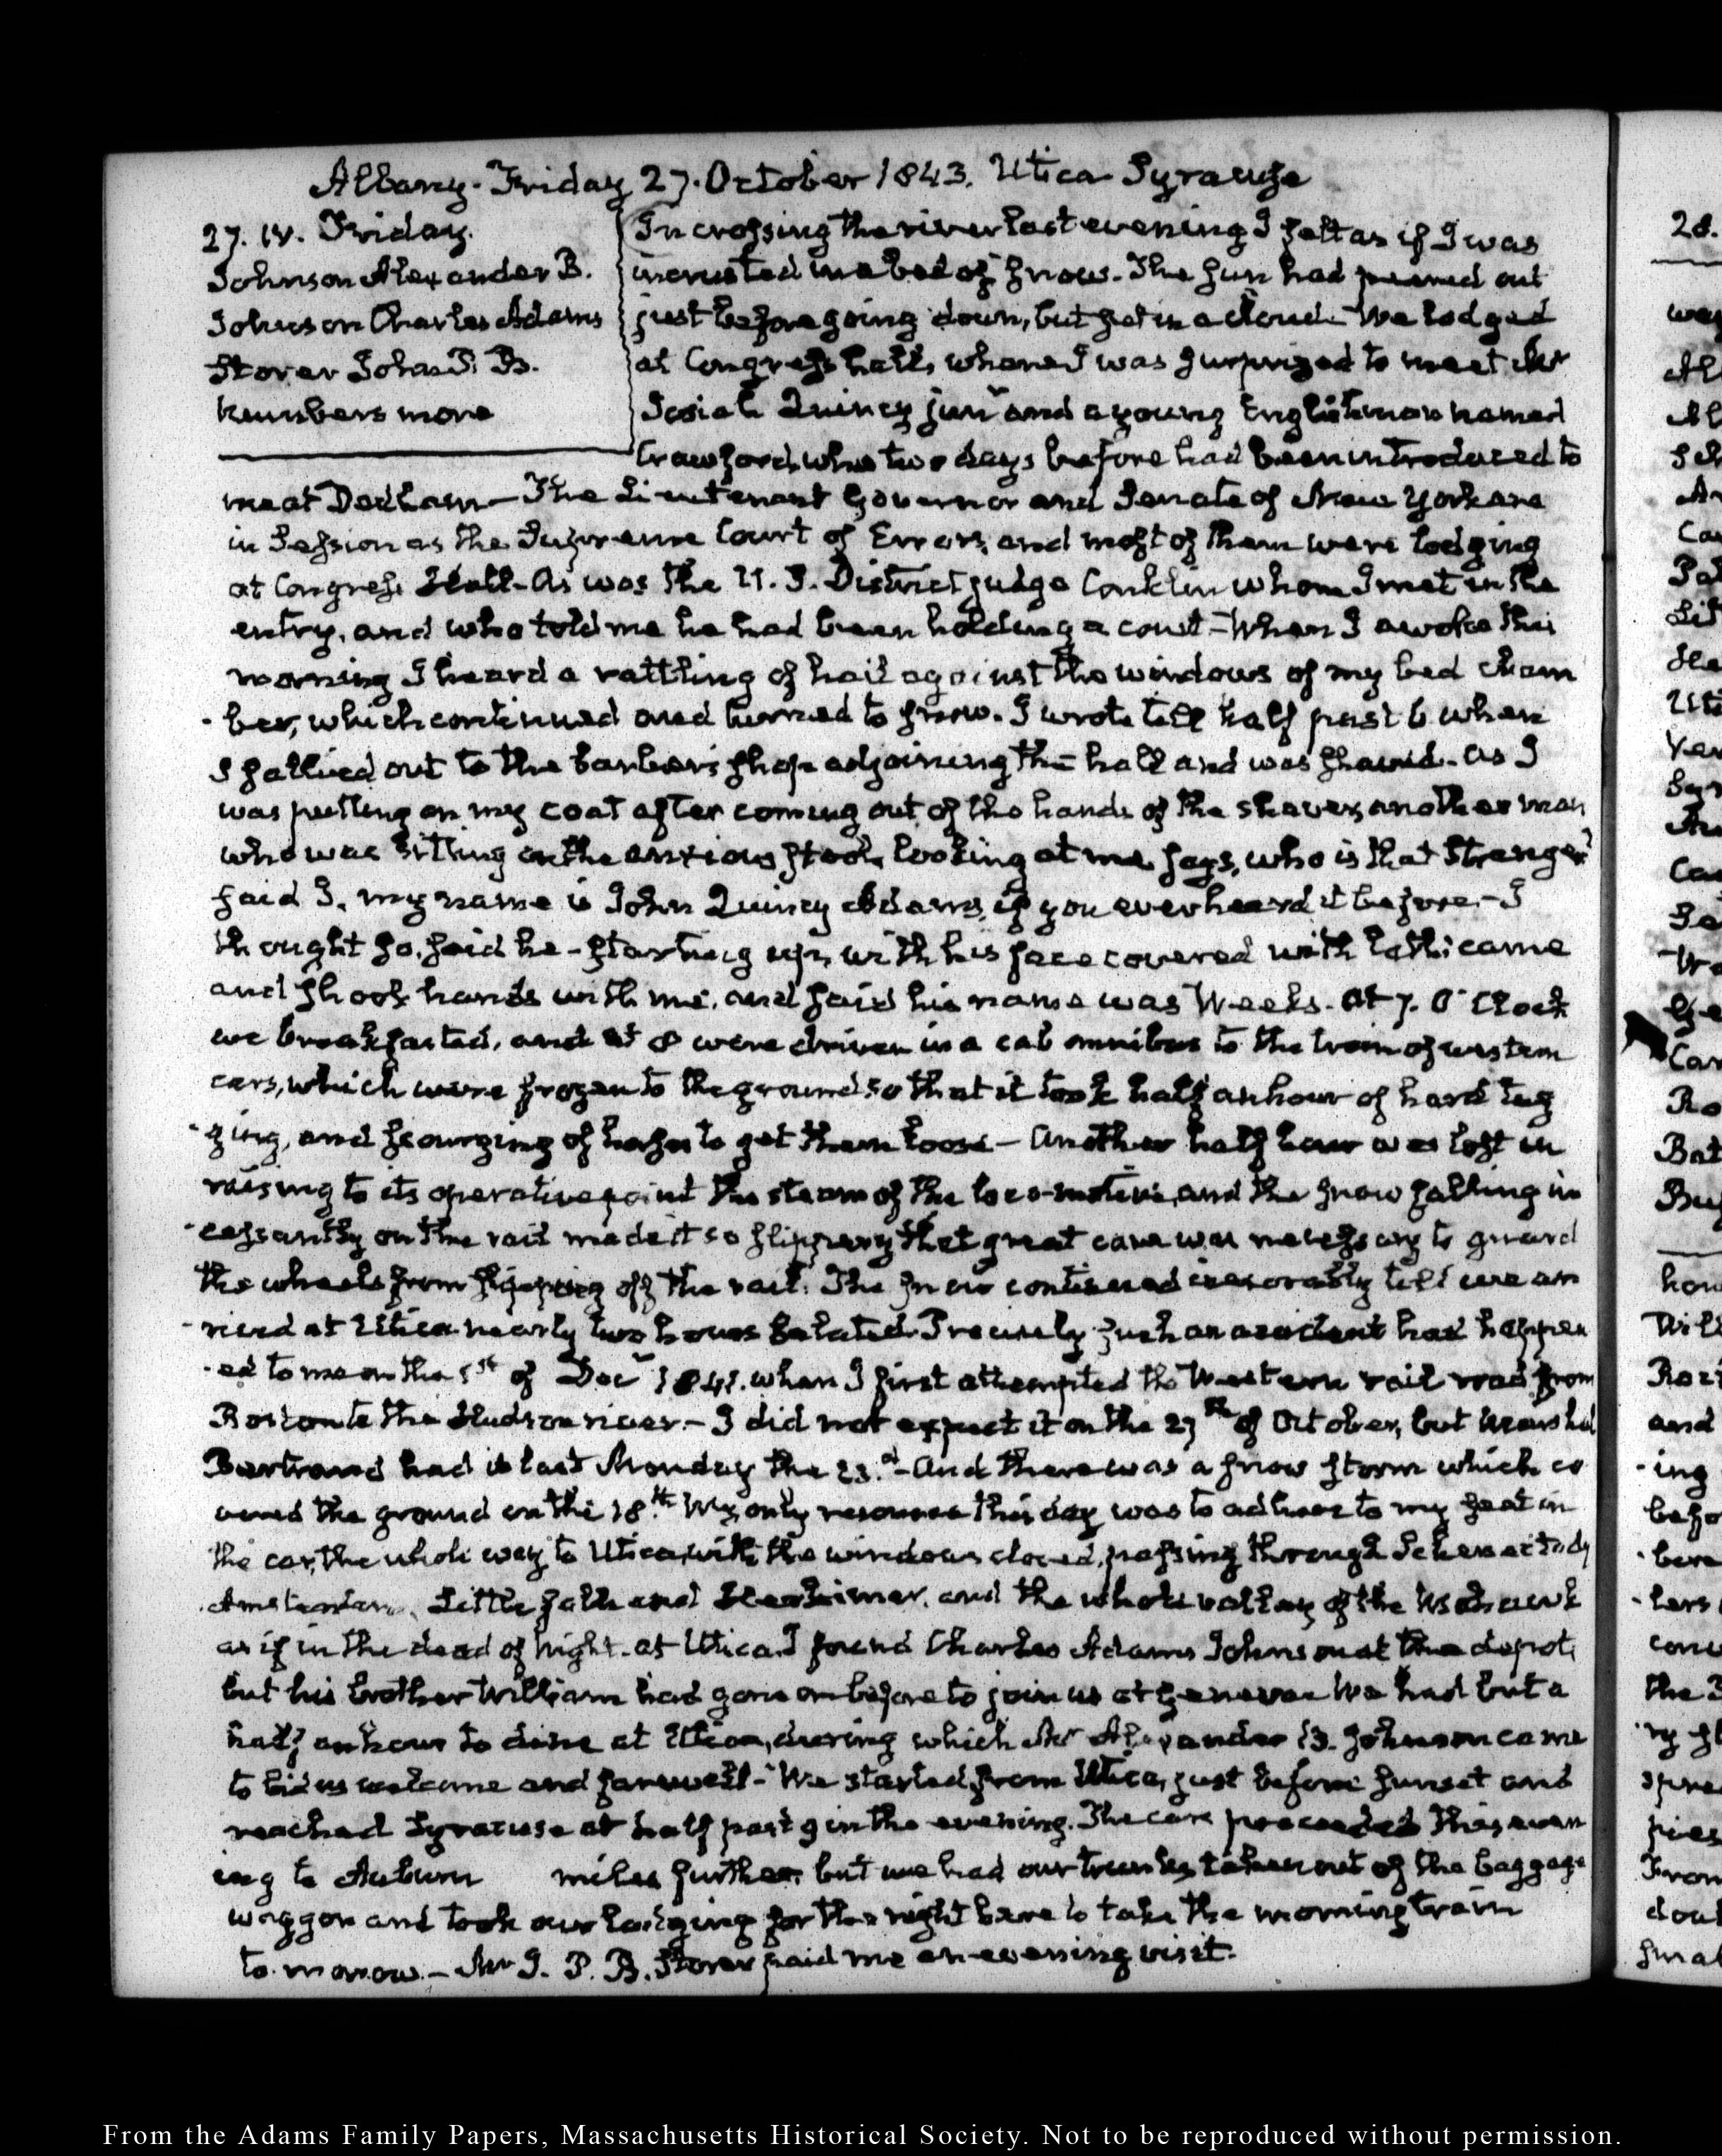 Albany. Friday 27. October 1843. Utica Syracuse
27. IV. Friday.
Johnson Alexander B.
Johnson Charles Adams
Storer John P. B.
Numbers more
In crossing the river last evening I felt as if I was
incrusted in a bed of snow. The Sun had peered out
just before going down, but set in a cloud. We lodged
at Congress hall, where I was surprized to meet Mr
Josiah Quincy junr and a young Englishman named
Crawford, who two days before had been introduced to
me at Dedham — The Lieutenant Governor and Senate of New York are
in Session as the Supreme Court of Errors, and most of them were lodging
at Congress Hall - As was the U. S. District judge Conklin whom I met in the
entry, and who told me he had been holding a court - When I awoke this
morning I heard a rattling of hail against the windows of my bed cham
-ber, which continued and turned to snow. I wrote till half past 6 when
I sallied out to the barber's shop adjoining the hall and was shaved. As I
was putting on my coat after coming out of the hands of the shaver, another man
who was sitting on the anxious stool, looking at me says, who is that Stranger?
said I, my name is John Quincy Adams, if you ever heard it before. - I
thought so, said he - starting up, with his face covered with lather came
and shook hands with me, and said his name was Weeks. At 7. O'Clock
we breakfasted, and at 8 were driven in a cab omnibus to the train of western
cars, which were frozen to the ground so that it took half an hour of hard tug
-ging, and scourging of horses to get them loose - Another half hour was lost in
raising to its operative point the steam of the loco-motive, and the snow falling in
-cessantly on the rail made it so slippery that great care was necessary to guard
the wheels from slipping off the rail. The snow continued inexorably till we arr
-rived at Utica nearly two hours belated. Precisely such an accident had happen
-ed to me on the 1st of Decr 1841. when I first attempted the Western rail road from
Boston to the Hudson river. - I did not expect it on the 27th of October, but Marshal
Bertrand had it last Monday the 23.d - And there was a snow storm which co
vered the ground on the 18.th My only resource this day was to adhere to my seat in
the car, the whole way to Utica, with the windows closed, passing through Schenectady
Amsterdam, Little falls and Herkimer, and the whole valley of the Mohawk
as if in the dead of night. At Utica I found Charles Adams Johnson at the depot,
but his brother William had gone on before to join us at Geneva. We had but a
half an hour to dine at Utica, during which Mr Alexander B. Johnson came
to bid us welcome and farewell - We started from Utica, just before sunset and
reached Syracuse at half past 9 in the evening. The cars proceeded this even
ing to Auburn miles further, but we had our trunks taken out of the baggage
waggon and took our lodging for the night here to take the morning train
to morrow. - Mr J. P. B. Storer paid me an evening visit.
From the Adams Family Papers, Massachusetts Historical Society. Not to be reproduced without permission.